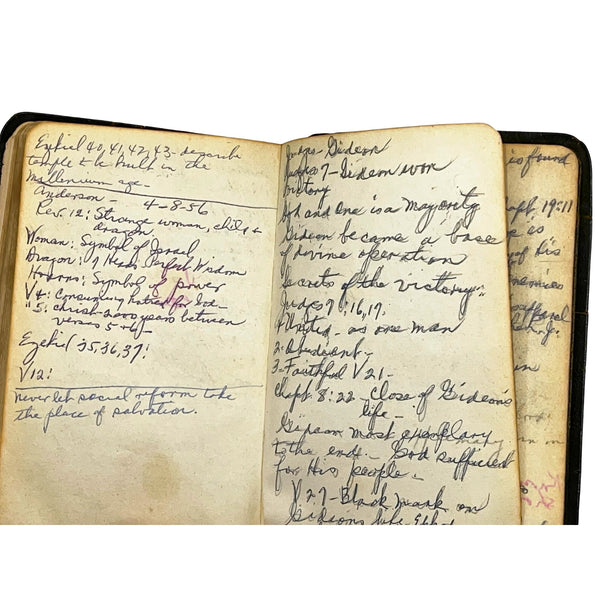 Ezekiel 40, 41, 42, 43 - describe
temple to be built in the
Millenium age -
Anderson - 4-8-56
Rev. 12: Strange woman, child &
dragon
Woman: Symbol of Israel
Dragon: 7 Heads Perfect Wisdom
Horns: Symbol of power
V4: Consuming hatred for God -
"5: christ - 2000 years between
verses 5 & 6 -
Ezekiel 35, 36, 37:
V12:
never let social reform take
the place of salvation.
Judge - Gideon
Judges 7 - Gideon won
victory
God and one is a majority
Gideon became a base
of divine operation
Secrets of the victory"
Judges 7:16, 17:
1 United - as one man
2 - Obedient -
3 - Faithful V21 -
Chapt. 8:22 - Close of Gideon's
life -
most exemplary
to the end. - God sufficient
for His people -
V27 - Black mark on
Gideons life -
is found
apt. 19:11
as
of his
enemies
in